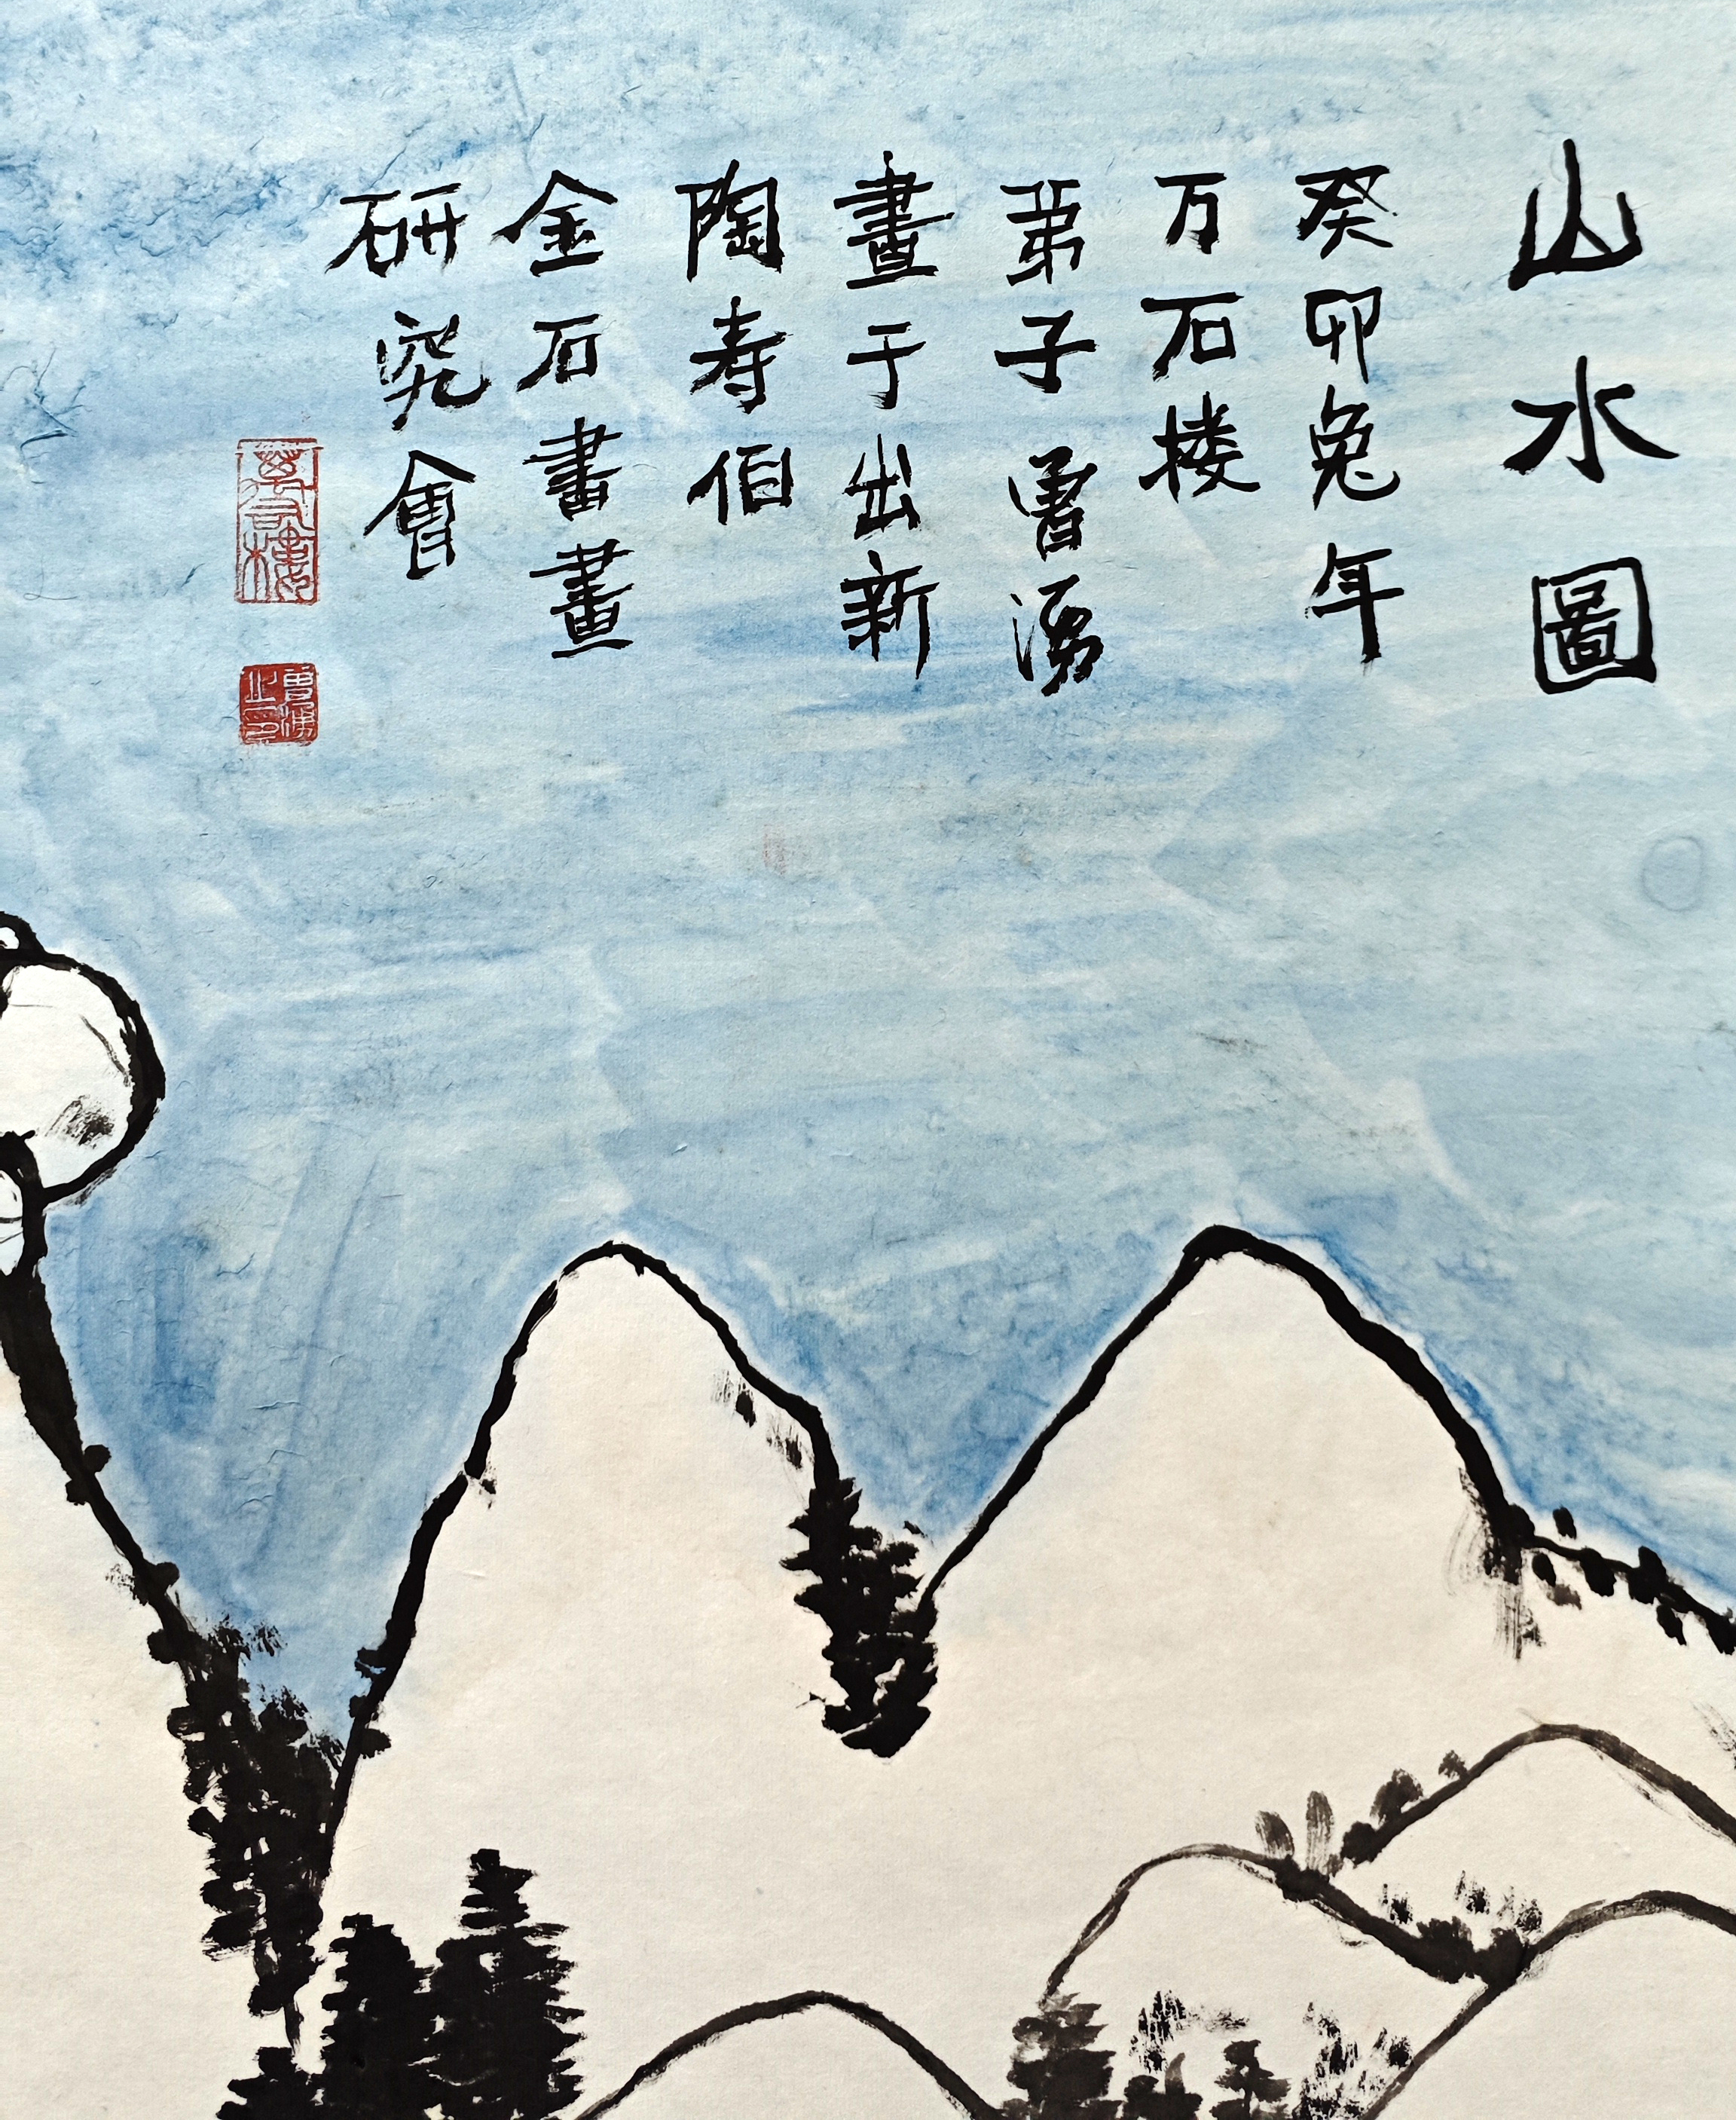 山水圖
癸卯兔年
万石楼
弟子曹湧
畫于出新
陶寿伯
金石書畫
研究會
萬石樓
曹湧之印